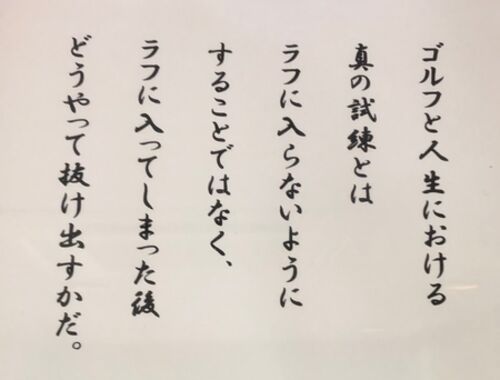 ゴルフと人生における
真の試練とは
ラフに入らないように
することではなく、
ラフに入ってしまった後
どうやって抜け出すかだ。